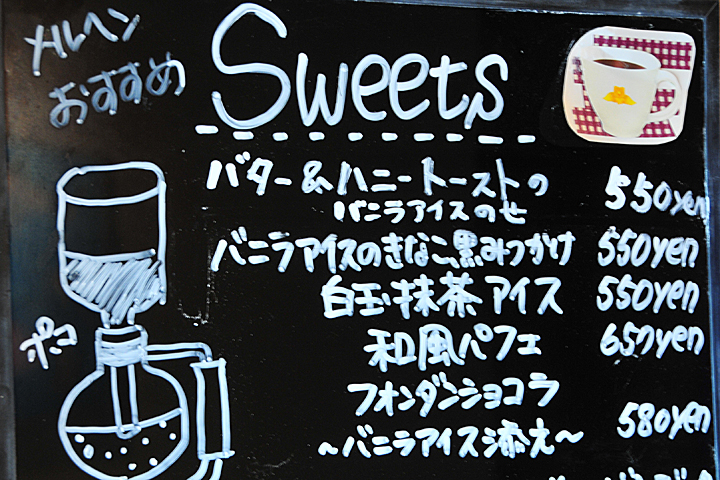 メルヘン
おすすめ
Sweets
バター&ハニートーストの 550yen
バニラアイスのせ
バニラアイスのきなこ、黒みつかけ 550yen
白玉抹茶アイス 550yen
和風パフェ 650yen
フォンダンショコラ
~バニラアイス添え~ 580yen
ポコ